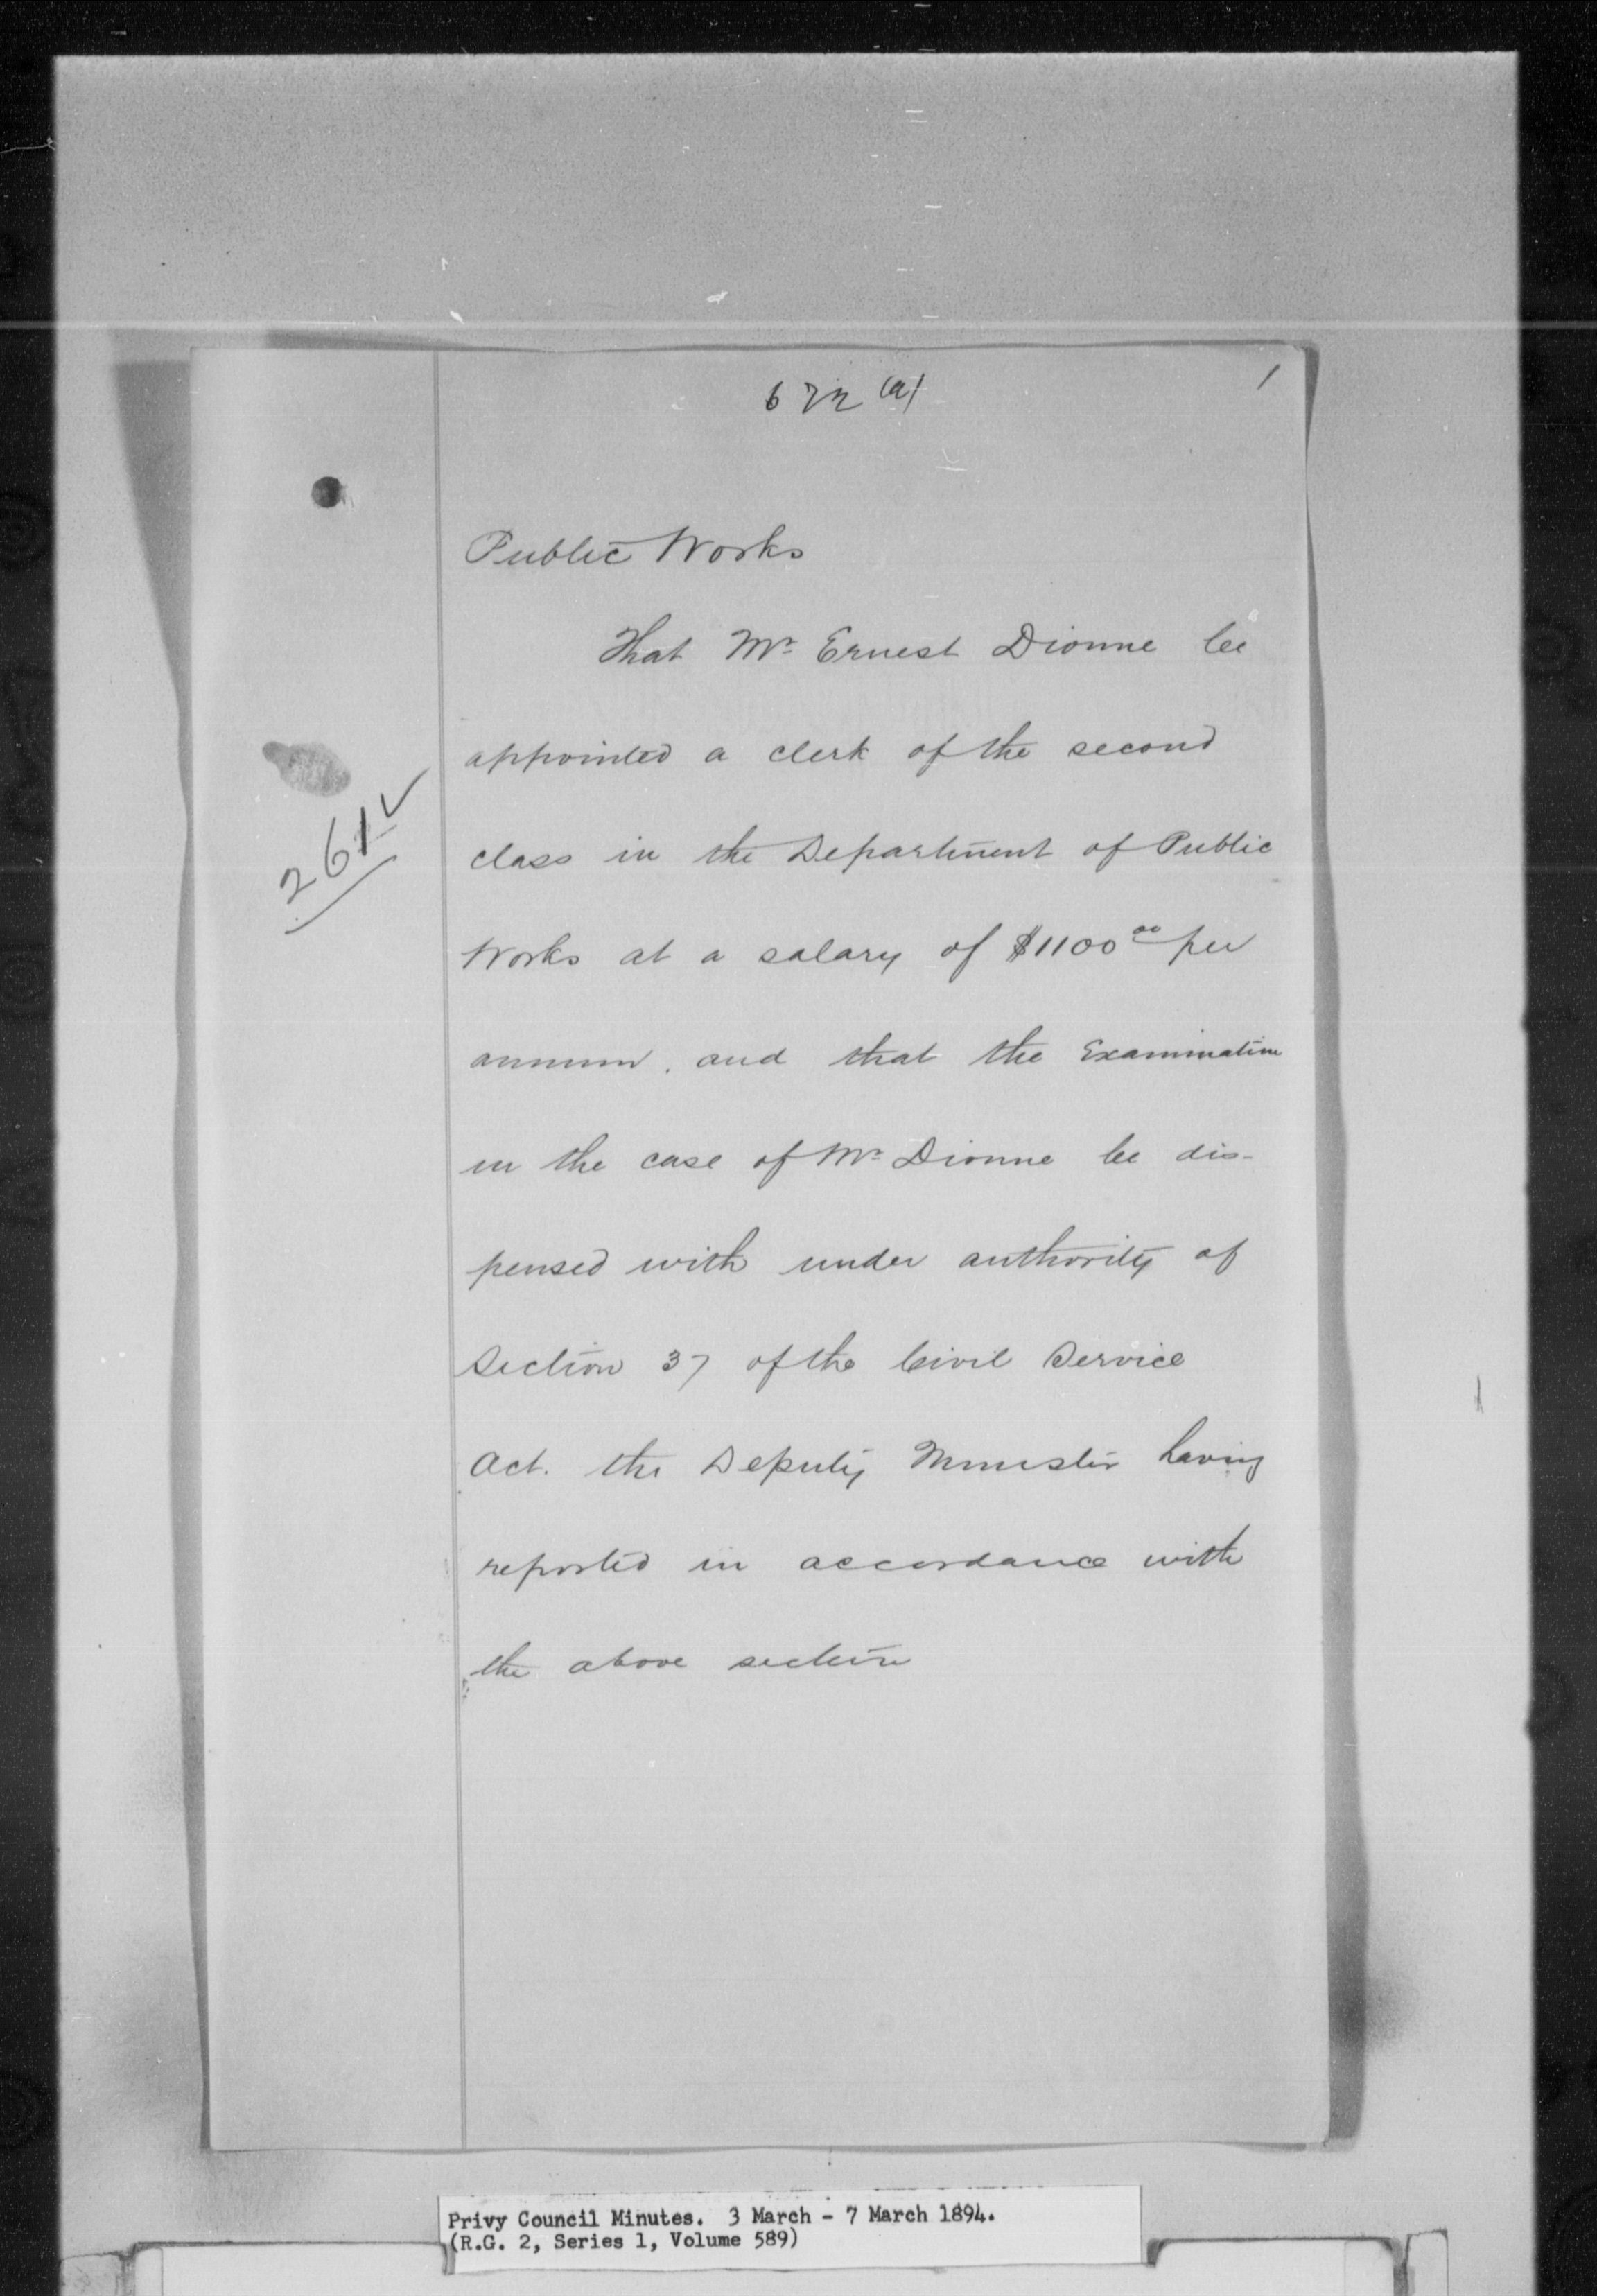 672 (a)
1
Public Works
That Mr Ernest Dionne be
appointed a clerk of the second
class in the Department of Public
Works at a salary of $1100 00 per
annum. and that the Examination
in the case of Mr Dionne be dis-
pensed with under authority of
Section 37 of the Civil Service
Act. the Deputy Minister having
reported in accordance with
the above section
261
Privy Council Minutes. 3 March - 7 March 1894.
(R.G. 2, Series 1, Volume 589)